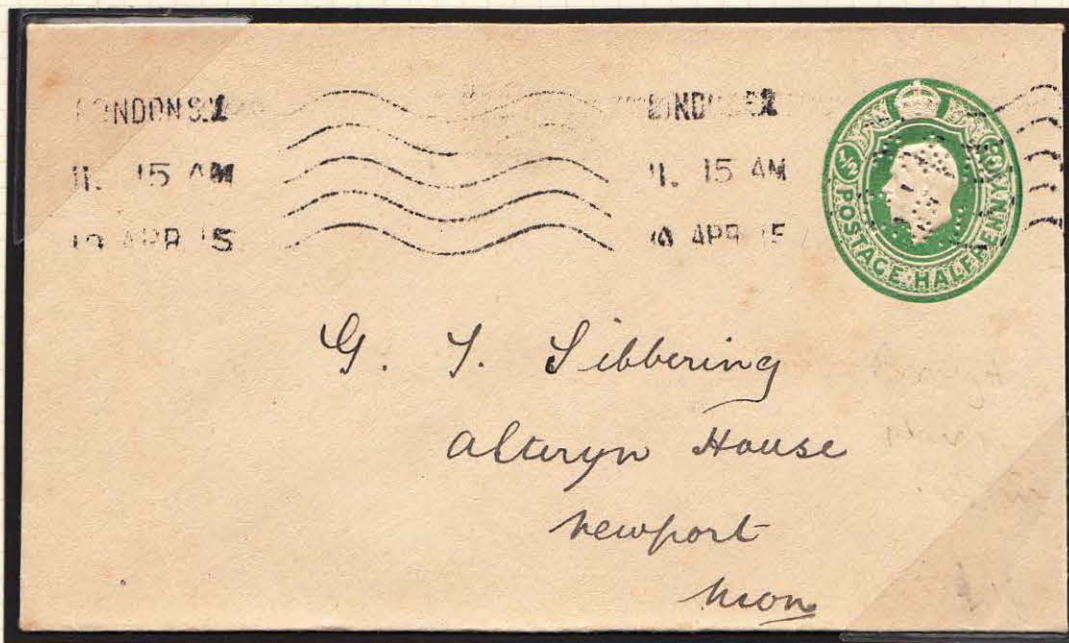 LONDON S.W.1
11. 15 AM
19 APR 15
11. 15 AM
APR 15
½
POSTAGE HALFPENNY
G. T. Sibbering
Alteryn House
Newport
Mon